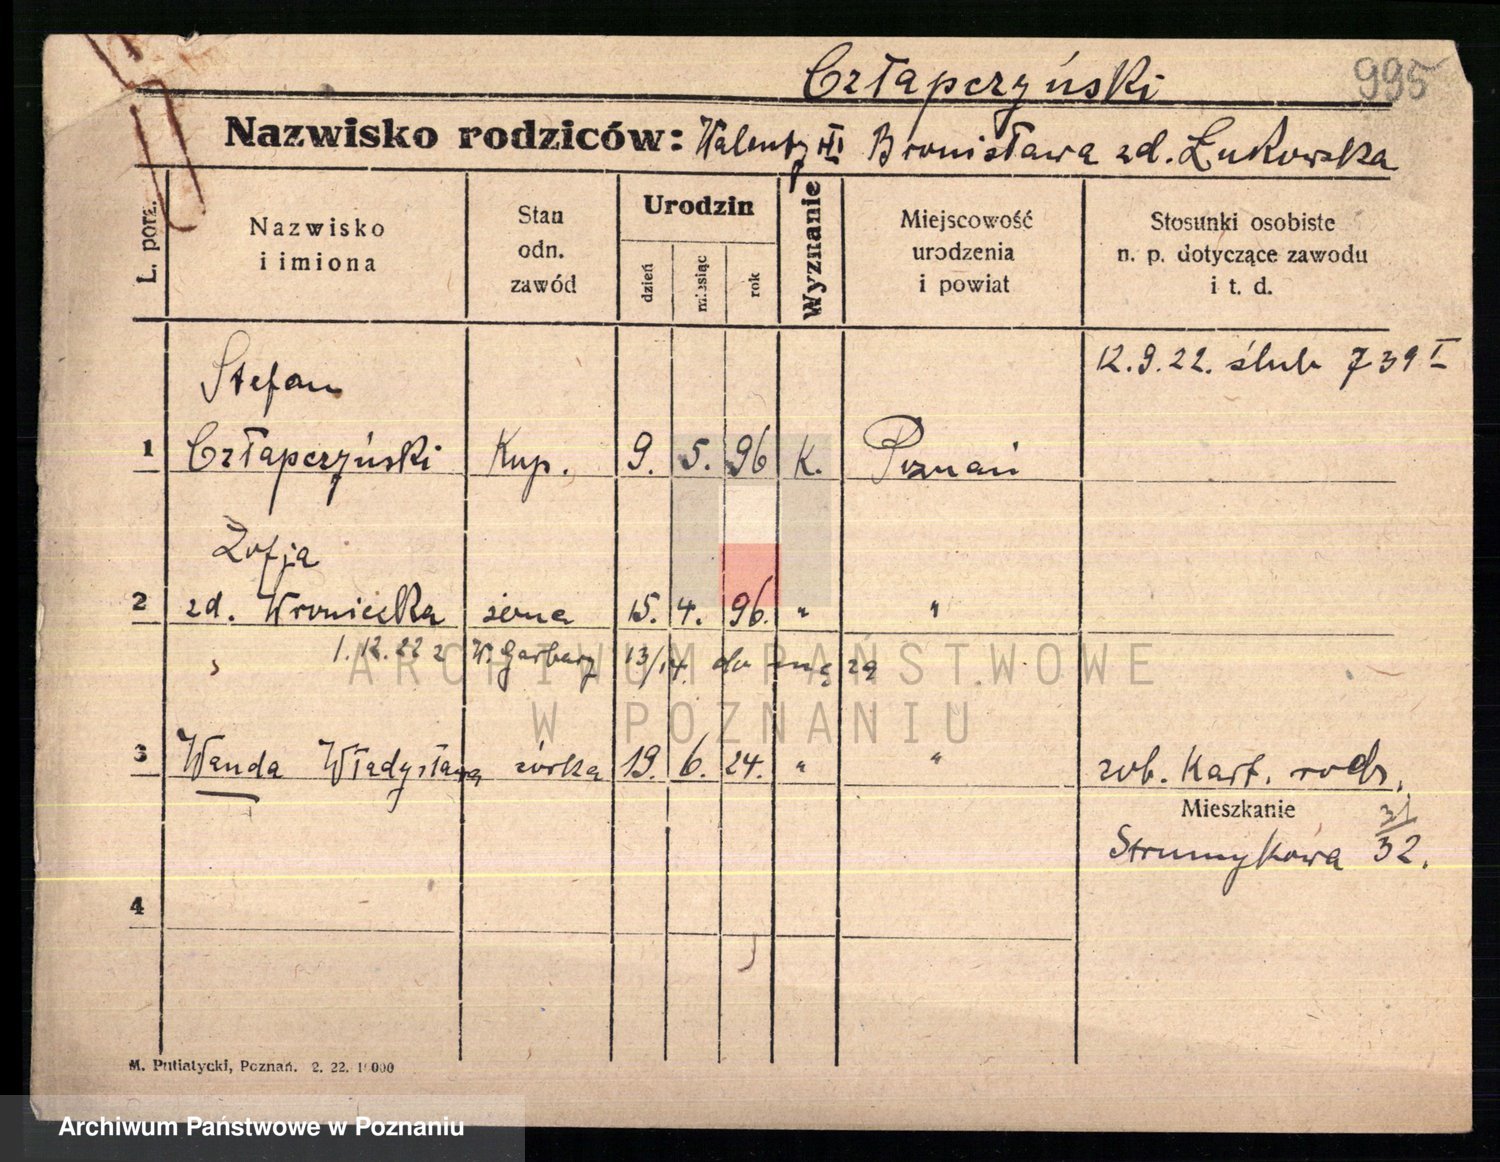 Człapczyński 995
Nazwisko rodziców: Walenty III Bronisława zd. Łukowska
L. porz.
Nazwisko
i imiona
Stan
odn.
zawód
Urodzin
dzień
miesiąc
rok
Wyznanie
Miejscowość
urodzenia
i powiat
Stosunki osobiste
n. p. dotyczące zawodu
i t. d.
12.9.22. ślub 739 I
Stefan
1 Człapczyński Kup. 9. 5. 96 K. Poznań
Zofja
2 zd. Wroniecka żona 15. 4. 96. " "
1.12.22 z W. Garbary 13/14. do męża
3 Wanda Władysława córka 19. 6. 24. " " zob. Kart. rodz.
Mieszkanie
Strumykowa 31/32.
4
M. Putiatycki, Poznań. 2. 22. 1 000
ARCHIWUM PAŃSTWOWE
W POZNANIU
Archiwum Państwowe w Poznaniu